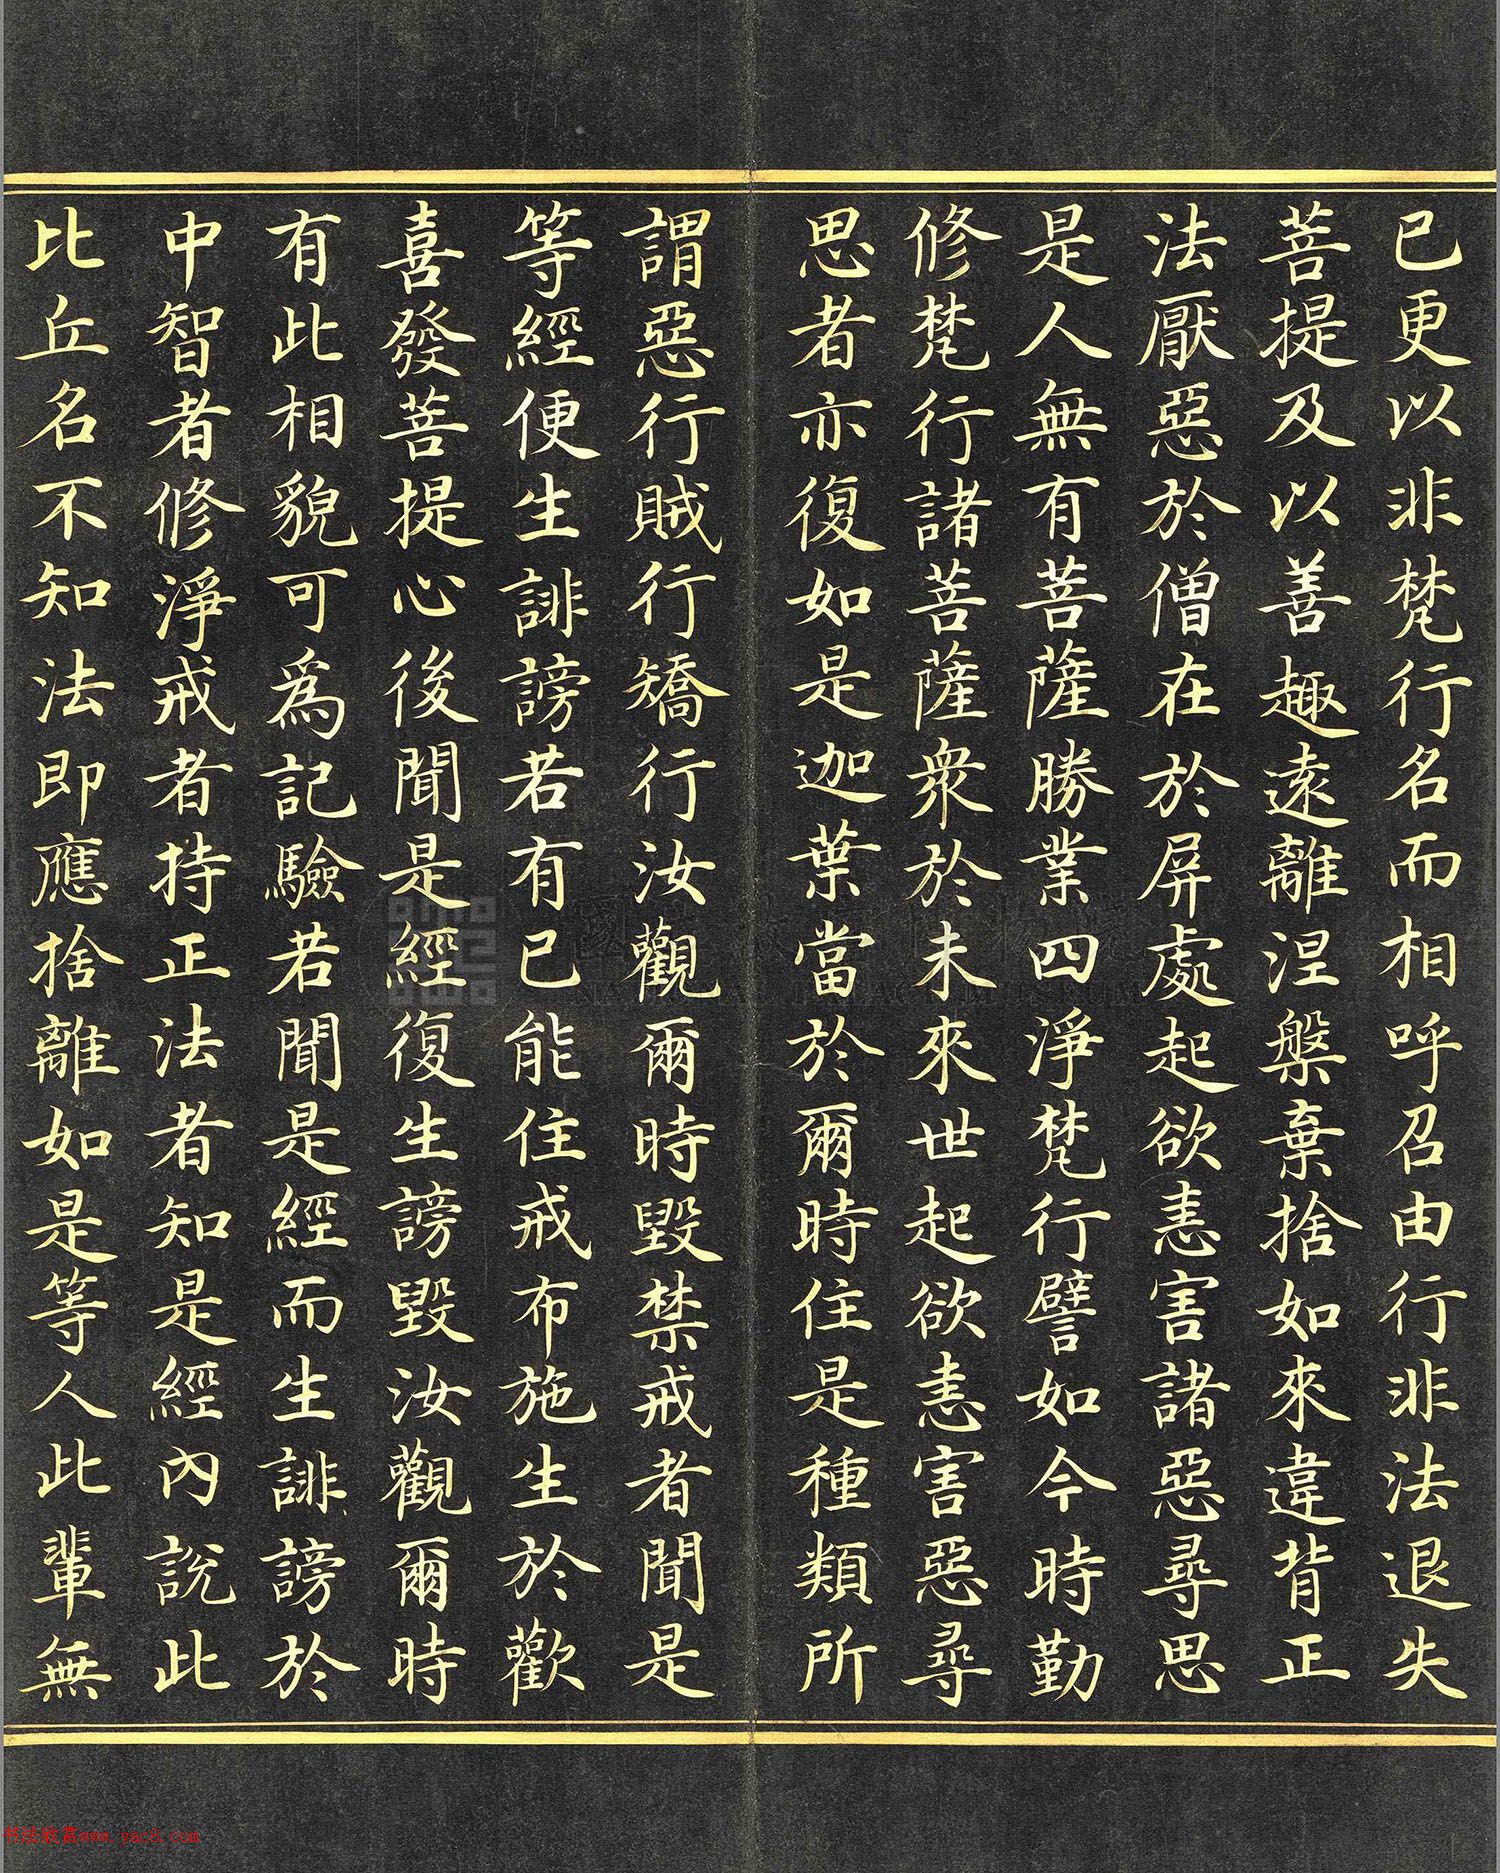 已更以非梵行名而相呼召由行非法退失
菩提及以善趣遠離涅槃棄捨如來違背正
法厭惡於僧在於屏處起欲恚害諸惡尋思
是人無有菩薩勝業四淨梵行譬如今時勤
修梵行諸菩薩衆於未來世起欲恚害惡尋
思者亦復如是迦葉當於爾時住是種類所
謂惡行賊行矯行汝觀爾時毀禁戒者聞是
等經便生誹謗若有已能住戒布施生於歡
喜發菩提心後聞是經復生謗毀汝觀爾時
有此相貌可為記驗若聞是經而生誹謗於
中智者修淨戒者持正法者知是經內說此
比丘名不知法即應捨離如是等人此輩無
书法欣赏www.yac8.com